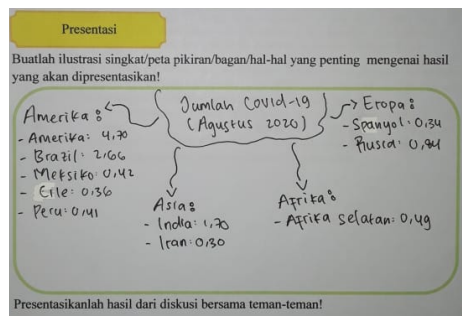 Presentasi
Buatlah ilustrasi singkat/peta pikiran/bagan/hal-hal yang penting mengenai hasil
yang akan dipresentasikan!
Jumlah Covid-19
(Agustus 2020)
Amerika:
- Amerika: 4,70
- Brazil: 2,66
- Meksiko: 0,42
- Cile: 0,36
- Peru: 0,41
Asia:
- India: 1,70
- Iran: 0,30
Afrika:
- Afrika selatan: 0,49
Eropa:
- Spanyol: 0,34
- Rusia: 0,84
Presentasikanlah hasil dari diskusi bersama teman-teman!